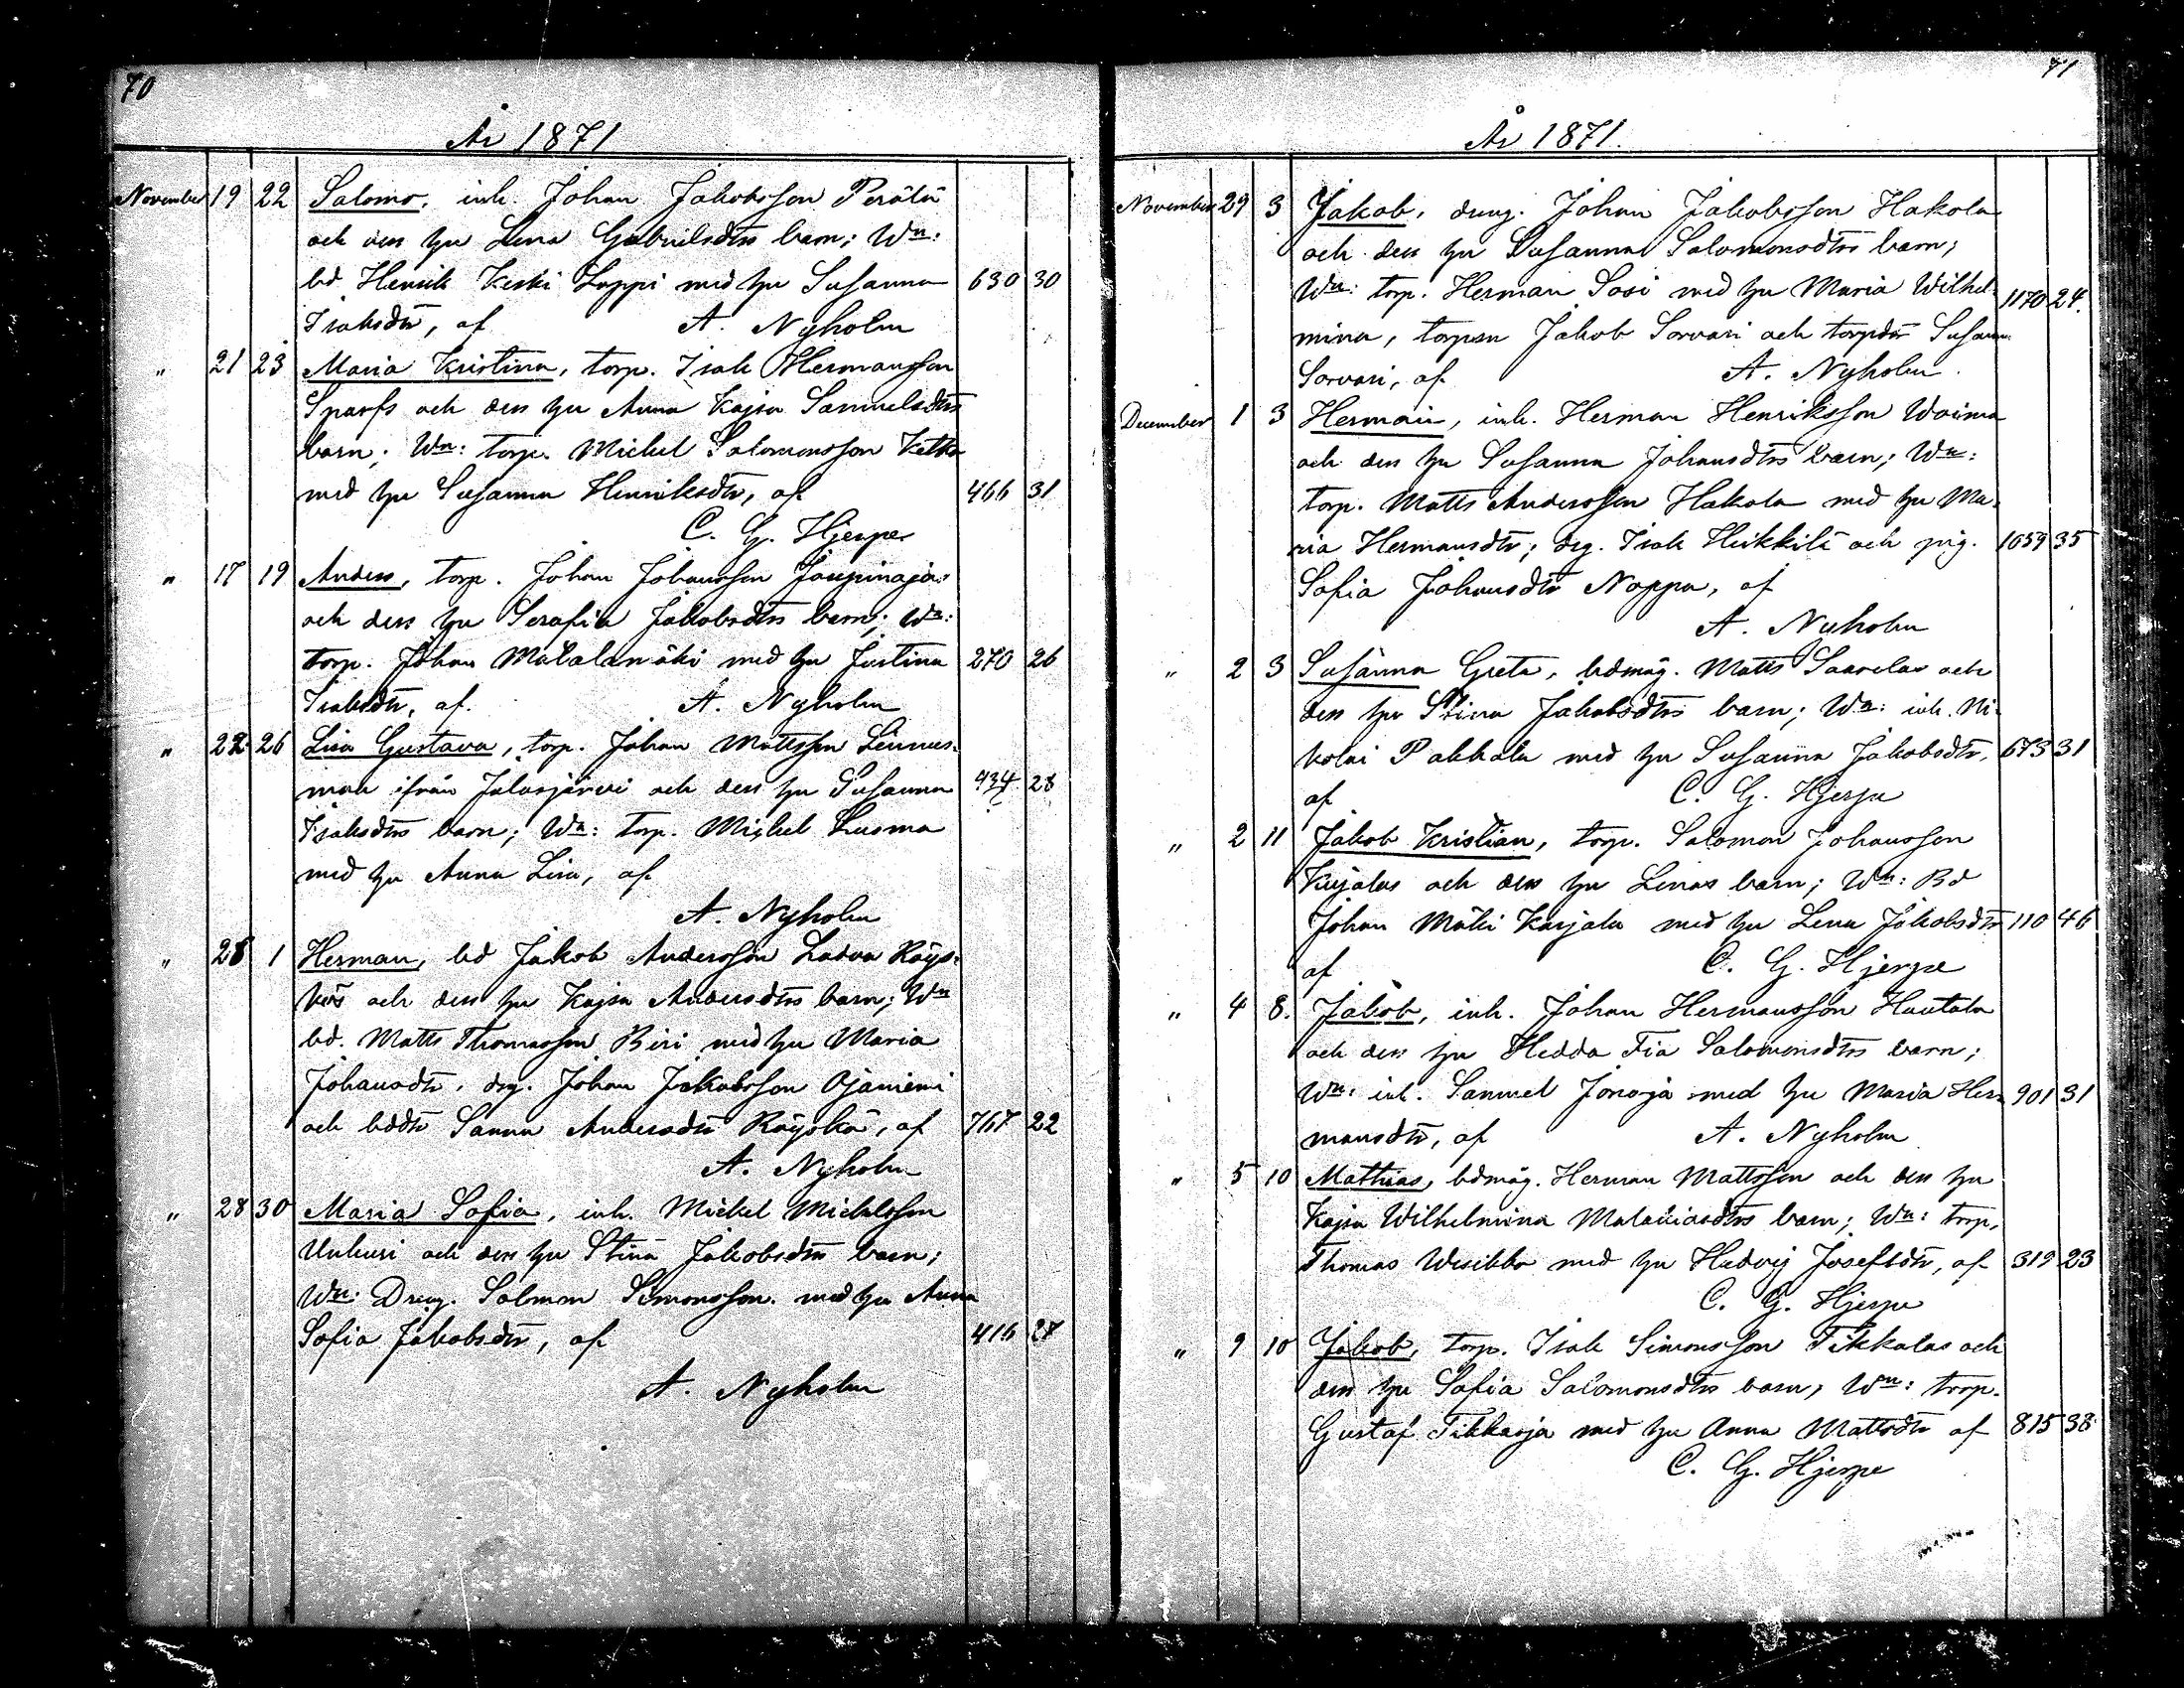 70
År 1871
November 19 22 Salomo, inh. Johan Jakobsson Perälä
och dess hu Lena Gabrielsdtrs barn; Wn:
bd Henrik Keski Loppi med hu Susanna 630 30
Isaksdtr, af A. Nyholm
" 21 23 Maria Kristina, torp. Isak Hermansson
Sparfs och dess hu Anna Kajsa Samuelsdtrs
barn; Wn: torp. Mickel Salomonsson Ketto
med hu Susanna Henriksdtr, af 466 31
C. G. Hjerpe
" 17 19 Anders, torp. Johan Johansson Jaupinoja
och dess hu Serafia Jakobsdtrs barn; Wn:
torp. Johan Matalamäki med hu Justina 270 26
Isaksdtr, af A. Nyholm
" 22 26 Lisa Gustava, torp. Johan Mattsson Linnus-
mah ifrån Jalasjärvi och dess hu Susanna 434 28
Isaksdtrs barn; Wn: torp. Michel Luoma
med hu Anna Lisa, af
A. Nyholm
" 28 1 Herman, bd Jakob Andersson Ladva Röys-
kös och dess hu Kajsa Andersdtrs barn; Wn
bd. Matts Thomasson Piri med hu Maria
Johansdtr, drg. Johan Jakobsson Ojaniemi
och bddtr Sanna Andersdtr Röyskä, af 767 22
A. Nyholm
" 28 30 Maria Sofia, inh. Mickel Mickelsson
Unkuri och dess hu Stina Jakobsdtrs barn;
Wn: Dreng. Salomon Simonsson med hu Anna
Sofia Jakobsdtr, af 416 27
A. Nyholm
71
År 1871.
November 29 3 Jakob, dreng. Johan Jakobsson Hakola
och dess hu Susanna Salomonsdtrs barn;
Wn: torp. Herman Sasi med hu Maria Wilhel- 1170 24.
mina, torpsn Jakob Sorvari och torpdtr Susanna
Sorvari, af A. Nyholm.
December 1 3 Herman, inh. Herman Henriksson Woima
och dess hu Susanna Johansdtrs barn; Wn:
torp. Matts Andersson Hakola med hu Ma-
ria Hermansdtr; drg. Isak Heikkilä och pig. 1059 35
Sofia Johansdtr Noppa, af
A. Nyholm
" 2 3 Susanna Greta, bdmåg. Matts Saarelas och
dess hu Stina Jakobsdtrs barn; Wn: inh. Ni-
kolai Pakkala med hu Susanna Jakobsdtr, 673 31
af C. G. Hjerpe
" 2 11 Jakob Kristian, torp. Salomon Johansson
Kujalas och dess hu Lenas barn; Wn: Bd
Johan Mäki Karjala med hu Lena Jakobsdtr 110 46
af C. G. Hjerpe
" 4 8. Jakob, inh. Johan Hermansson Hautala
och dess hu Hedda Fia Salomonsdtrs barn;
Wn: inh. Samuel Jonoja med hu Maria Her- 901 31
mansdtr, af A. Nyholm
" 5 10 Mathias, bdmåg. Herman Mattsson och dess hu
Kajsa Wilhelmina Malakiasdtrs barn; Wn: torp.
Thomas Wesikko med hu Hedvig Josefsdtr, af 319 23
C. G. Hjerpe
" 9 10 Jakob, torp. Isak Simonsson Tikkalas och
dess hu Sofia Salomonsdtrs barn; Wn: torp.
Gustaf Tikkaoja med hu Anna Mattsdtr af 815 38
C. G. Hjerpe